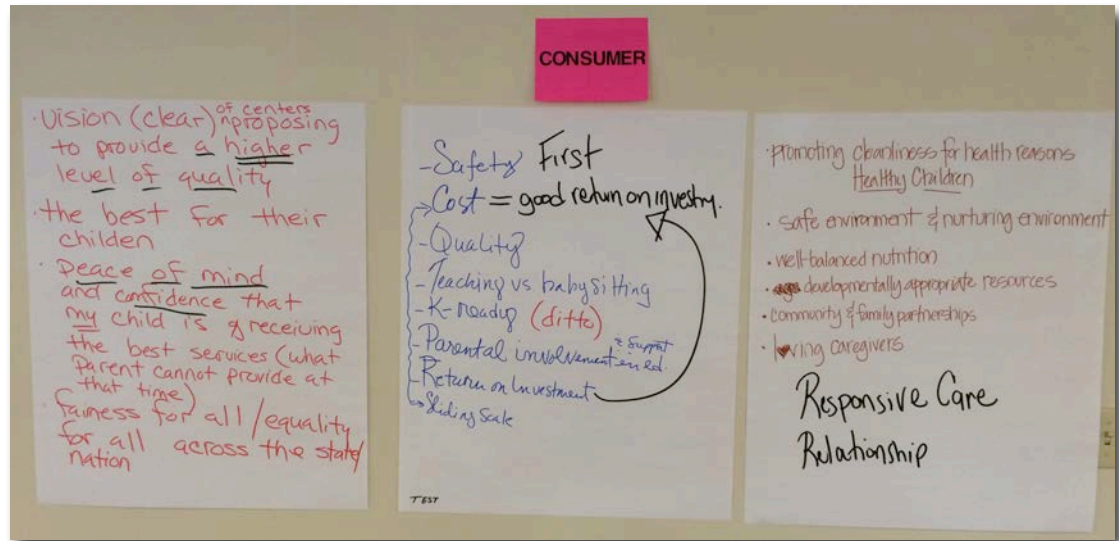 CONSUMER
·Vision (clear) of centers proposing
to provide a higher
level of quality
·the best for their
childen
·Peace of mind
and confidence that
my child is receiving
the best services (what
Parent cannot provide at
that time)
·fairness for all/equality
for all across the state/
nation
-Safety First
-Cost = good return on investm.
-Quality
-Teaching vs babysitting
-K-ready (ditto)
-Parental involvement & support
in ed.
-Return on Investment
-Sliding Scale
TEST
·promoting cleanliness for health reasons
Healthy Children
·safe environment & nurturing environment
·well-balanced nutrition
·developmentally appropriate resources
·community & family partnerships
·loving caregivers
Responsive Care
Relationship